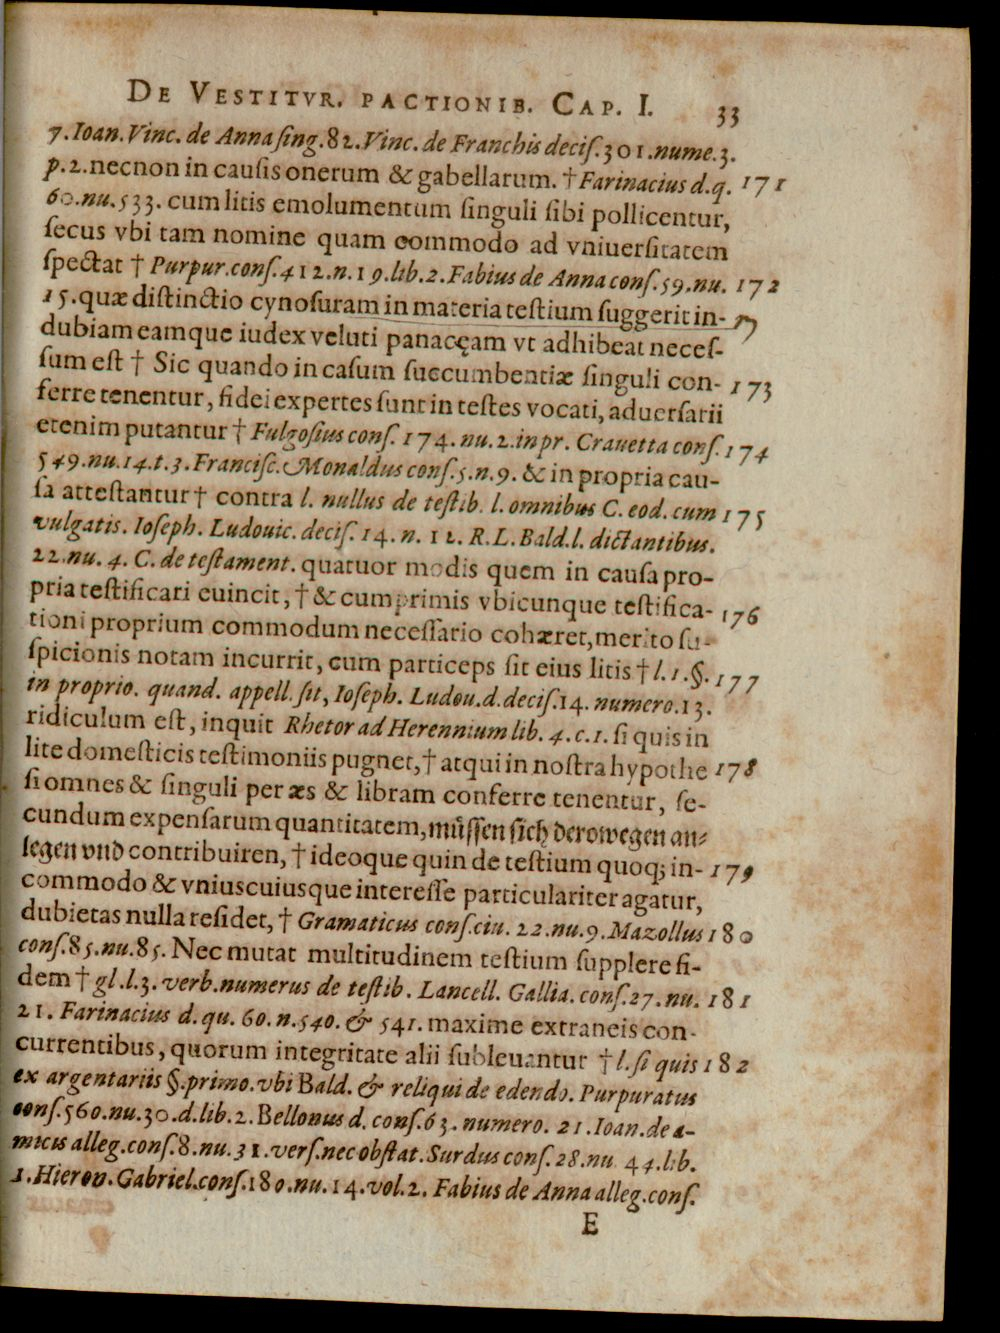 DE VESTITVR. PACTIONIB. CAP. I. 33
7. Ioan. Vinc. de Anna ſing. 82. Vinc. de Franchis deciſ. 301. nume. 3.
p. 2. necnon in cauſis onerum & gabellarum. † Farinacius d. q. 171
60. nu. 533. cum litis emolumentum ſinguli ſibi pollicentur,
ſecus vbi tam nomine quam commodo ad vniuerſitatem
ſpectat † Purpur. conſ. 412. n. 19. lib. 2. Fabius de Anna conſ. 59. nu. 172
15. quæ diſtinctio cynoſuram in materia teſtium ſuggerit in-
dubiam eamque iudex veluti panacęam vt adhibeat neceſ-
ſum eſt † Sic quando in caſum ſuccumbentiæ ſinguli con- 173
ferre tenentur, fidei expertes ſunt in teſtes vocati, aduerſarii
etenim putantur † Fulgoſius conſ. 174. nu. 2. in pr. Crauetta conſ. 174
549. nu. 14. t. 3. Franciſc. Monaldus conſ. 5. n. 9. & in propria cau-
ſa atteſtantur † contra l. nullus de teſtib. l. omnibus C. eod. cum 175
vulgatis. Ioſeph. Ludouic. deciſ. 14. n. 12. R. L. Bald. l. dictantibus.
22. nu. 4. C. de teſtament. quatuor modis quem in cauſa pro-
pria teſtificari euincit, † & cumprimis vbicunque teſtifica- 176
tioni proprium commodum neceſſario cohæret, merito ſu-
ſpicionis notam incurrit, cum particeps ſit eius litis † l. 1. §. 177
in proprio. quand. appell. ſit, Ioſeph. Ludou. d. deciſ. 14. numero. 13.
ridiculum eſt, inquit Rhetor ad Herennium lib. 4. c. 1. ſi quis in
lite domeſticis teſtimoniis pugnet, † atqui in noſtra hypothe 178
ſi omnes & ſinguli per æs & libram conferre tenentur, ſe-
cundum expenſarum quantitatem, muͤſſen ſich derowegen an-
legen vnd contribuiren, † ideoque quin de teſtium quoq; in- 179
commodo & vniuscuiusque intereſſe particulariter agatur,
dubietas nulla reſidet, † Gramaticus conſ. ciu. 22. nu. 9. Mazollus 180
conſ. 85. nu. 85. Nec mutat multitudinem teſtium ſupplere fi-
dem † gl. l. 3. verb. numerus de teſtib. Lancell. Gallia. conſ. 27. nu. 181
21. Farinacius d. qu. 60. n. 540. & 541. maxime extraneis con-
currentibus, quorum integritate alii ſubleuantur † l. ſi quis 182
ex argentariis §. primo. vbi Bald. & reliqui de edendo. Purpuratus
conſ. 560. nu. 30. d. lib. 2. Bellonus d. conſ. 63. numero. 21. Ioan. de a-
micis alleg. conſ. 8. nu. 31. verſ. nec obſtat. Surdus conſ. 28. nu 44. lib.
1. Hieron. Gabriel. conſ. 180. nu. 14. vol. 2. Fabius de Anna alleg. conſ.
E